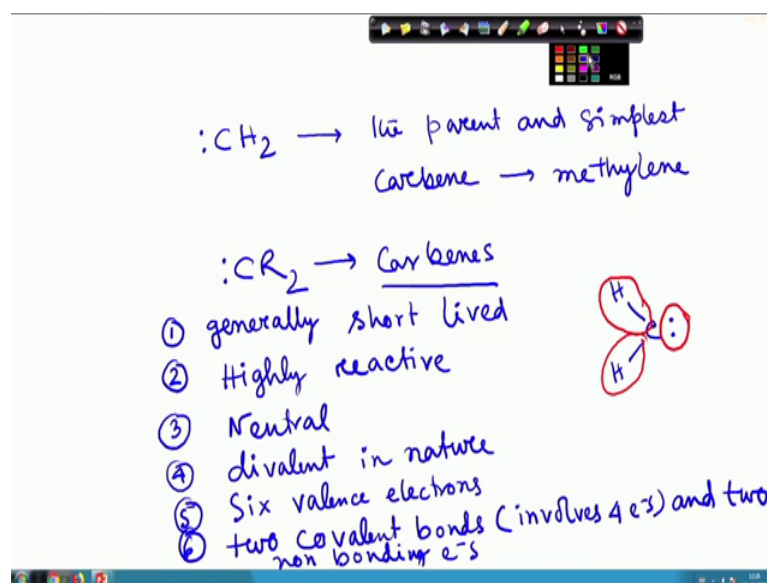 :CH2 → The parent and simplest
Carbene → methylene
:CR2 → Carbenes
① generally short lived
② Highly reactive
③ Neutral
④ divalent in nature
⑤ Six valence electrons
⑥ two covalent bonds (involves 4 e-s) and two
non bonding e-s
H
C:
H
RGB